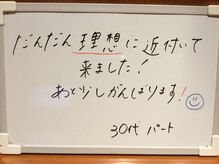 だんだん理想に近付いて
来ました！
あと少しがんばります！
30代 パート